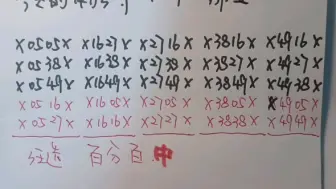 x0505x x1627x x2716x x3816x x4916x
x0538x x1638x x2738x x3827x x4927x
x0549x x1649x x2749x x3849x x4938x
x0516x x1605x x2705x x3805x x4905x
x0527x x1616x x2727x x3838x x4949x
百分百中